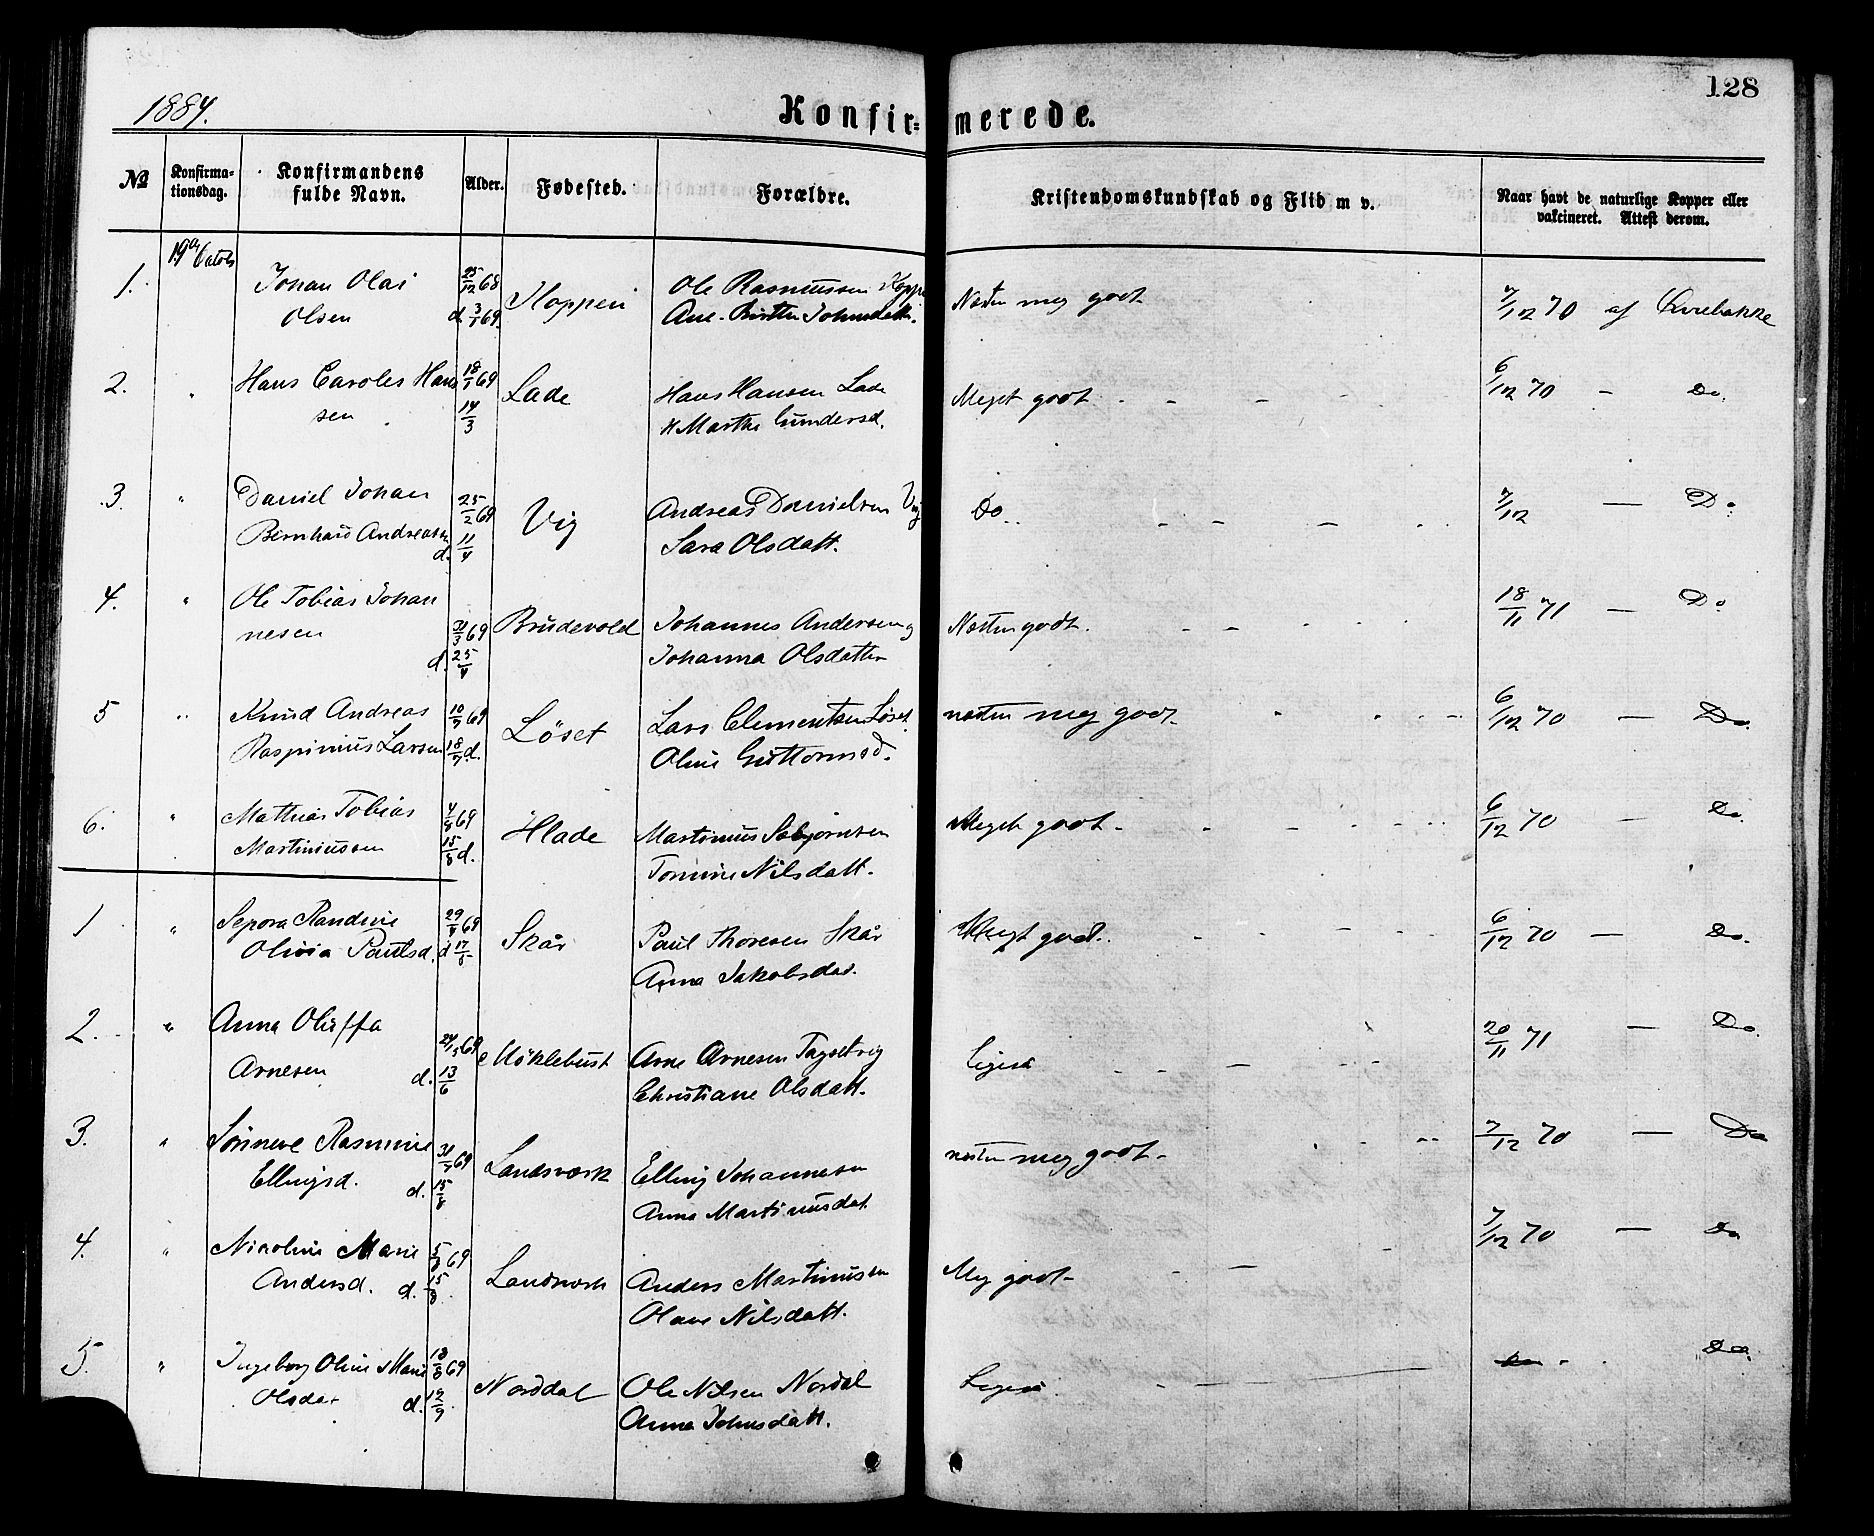 128
1884.
Konfir=merede.
No
Konfirma-
tionsdag.
Konfirmandens
fulde Navn.
Alder.
Fødested.
Forældre.
Kristendomskundskab og Flid m v.
Naar havt de naturlige Kopper eller
vakcineret. Attest derom.
19de Octob
1. Johan Olai 25/12 68 Hoppen Ole Rasmussen Hoppe Næsten meg godt 7/12 70 af
Olsen d. 3/1 69. Ane-Birtte Johnsdatter.
2. " Hans Caroles Han 18/1 69 Lade Hans Hansen Lade Meget godt - - - 6/12 70 - Do.
sen 14/3 Marthe Gundersd.
3. " Daniel Johan 25/2 69 Vig Andreas Danielsen Vig Do. - - - 7/12 - Do
Bernhard Andreassen d. 11/4 Sara Olsdatt.
4. " Ole Tobias Johan Brudevold Johannes Andersen Næsten godt. - - 18/11 71 - Do
nesen 31/3 69 Johanna Olsdatter
d. 25/4
5 " Knud Andreas 10/7 69 Löset Lars Clementsen Löset næsten meg godt - - - 6/12 70 - Do.
Raspinius Larsen 18/7 d. Oline Guttormsd.
6. " Mathias Tobias 4/8 69 Hlade Martinus Sabjørnsen Meget godt - - - 6/12 70 - Do.
Martinussen 15/8 d. Tomine Nilsdatt.
1 " Sepora Randine 29/4 69 Skår Paul Thoresen Skår Meget godt. - - - 6/12 70 - Do.
Olivia Paulsd. d 17/5 Anna Jakobsdat.
2. " Anna Oluffa 24/5 69 Möklebust Arne Arnesen Ligeså - - - 20/11 71 - Do
Arnesen d. 13/6 Christiane Olsdatt.
3. " Sönneve Rasmine 31/7 69 Landsværk Elling Johannesen næsten meg godt - 7/12 70 - Do
Ellingsd. d. 15/8 Anna Martinusdat
4. " Nikoline Marie 5/8 69 Landværk Anders Martinussen Meg godt - 7/12 70 - Do
Andersd. d. 15/8 Olave Nilsdatt.
5. " Ingeborg Oline Marie 18/8 69 Norddal Ole Nilsen Nordal Ligeså. - Do.
Olsdat d. 12/9 Anna Johnsdatt.